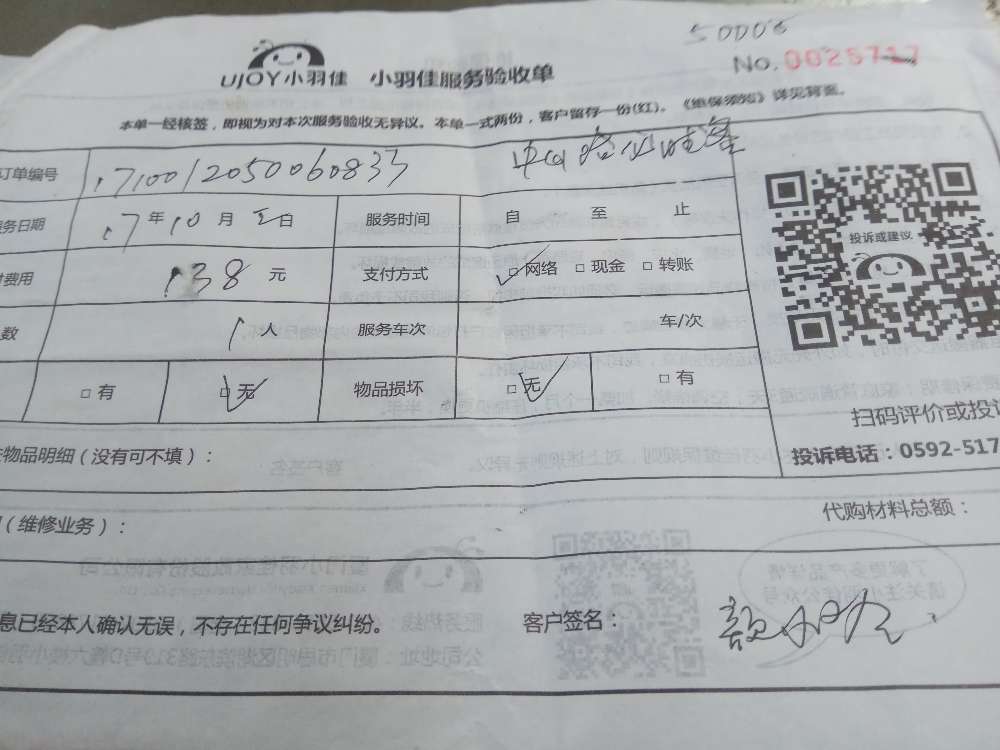 50006
No. 0025717
UJOY小羽佳 小羽佳服务验收单
本单一经核签，即视为对本次服务验收无异议。本单一式两份，客户留存一份(红)。《维保须知》详见背面。
订单编号 1710012050060833
务日期 17年10月三日 服务时间 自 至 止
费用 138元 支付方式 □网络 □现金 □转账
数 1人 服务车次 车/次
□有 □无 物品损坏 □无 □有
投诉或建议
扫码评价或投
投诉电话：0592-517
物品明细（没有可不填）：
（维修业务）： 代购材料总额：
息已经本人确认无误，不存在任何争议纠纷。 客户签名：